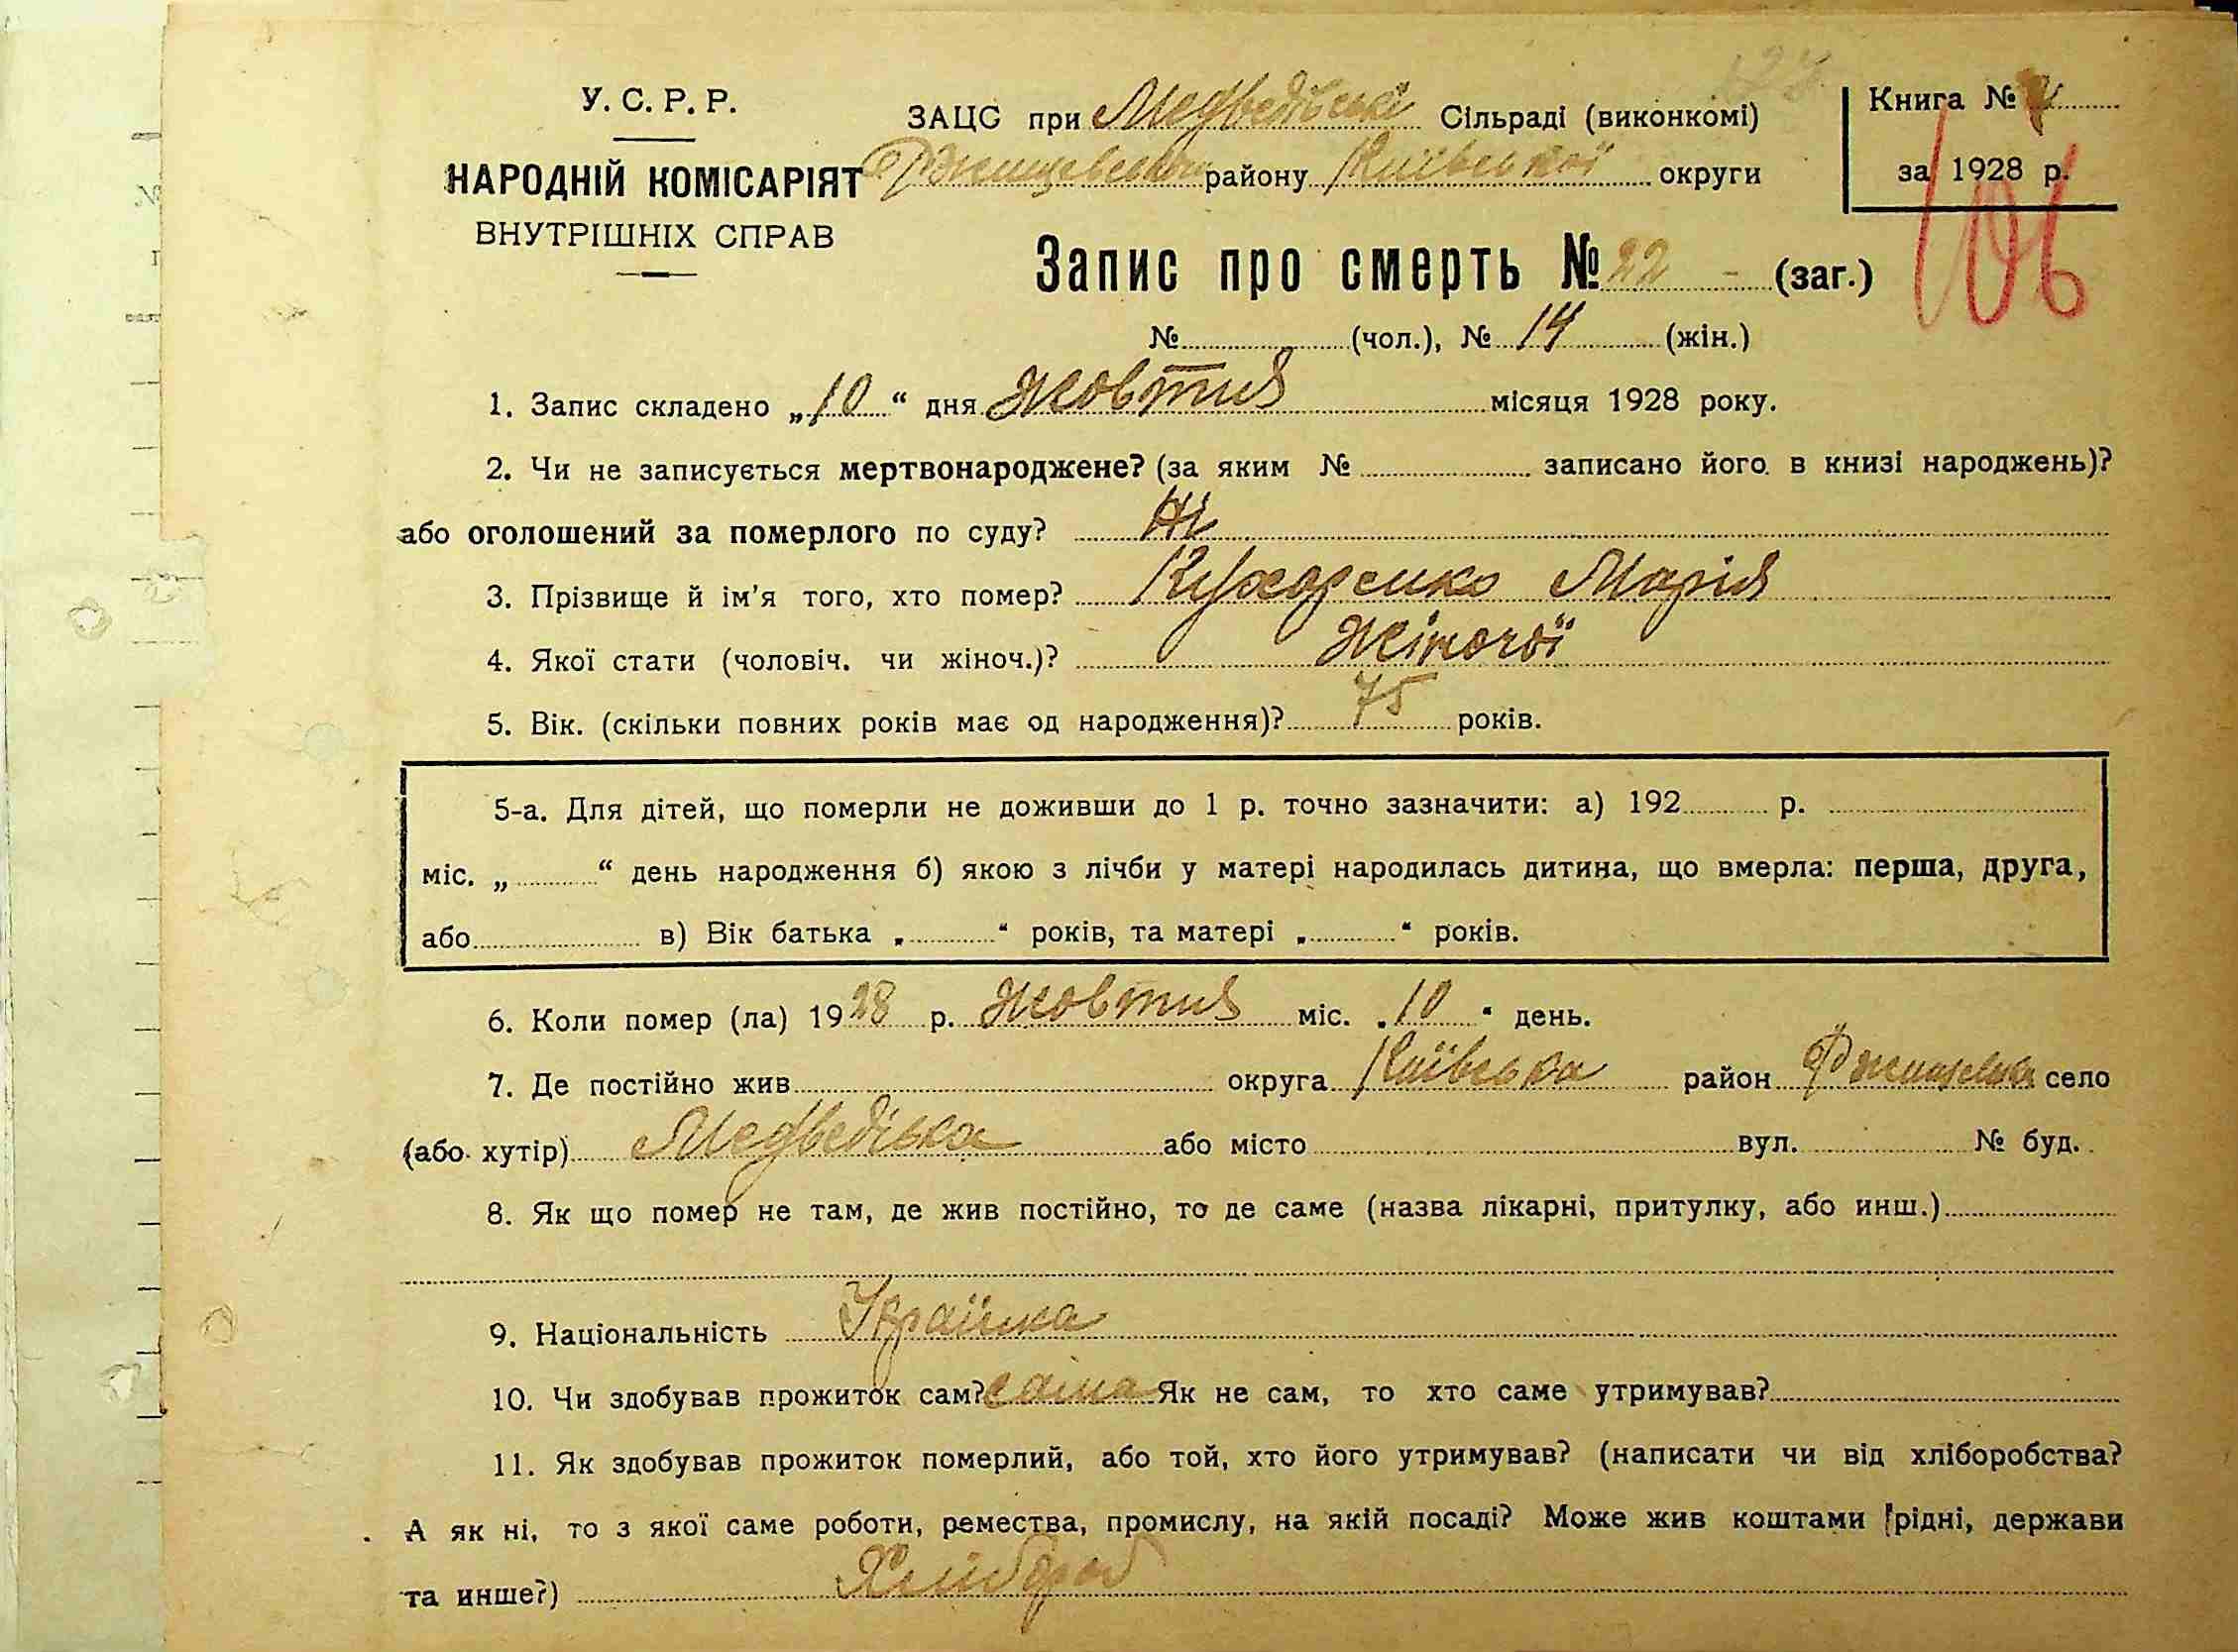 У. С. Р. Р.
НАРОДНІЙ КОМІСАРІЯТ
ВНУТРІШНІХ СПРАВ
ЗАЦС при Медведівські Сільраді (виконкомі)
району Київської округи
Книга №
за 1928 р.
106
Запис про смерть № 22 - (заг.)
№ (чол.), № 14 (жін.)
1. Запис складено „10“ дня Жовтня місяця 1928 року.
2. Чи не записується мертвонароджене? (за яким № записано його в книзі народжень)?
або оголошений за померлого по суду? Ні
3. Прізвище й ім'я того, хто помер? Кухаренко Марія
4. Якої стати (чоловіч. чи жіноч.)? Жіночої
5. Вік. (скільки повних років має од народження)? 75 років.
5-а. Для дітей, що померли не доживши до 1 р. точно зазначити: а) 192 р.
міс. „ “ день народження б) якою з лічби у матері народилась дитина, що вмерла: перша, друга,
або в) Вік батька „ “ років, та матері „ “ років.
6. Коли помер (ла) 1928 р. Жовтня міс. „10“ день.
7. Де постійно жив округа Київська район село
(або хутір) Медведівка або місто вул. № буд.
8. Як що помер не там, де жив постійно, то де саме (назва лікарні, притулку, або инш.)
9. Національність Українка
10. Чи здобував прожиток сам? сама Як не сам, то хто саме утримував?
11. Як здобував прожиток померлий, або той, хто його утримував? (написати чи від хліборобства?
А як ні, то з якої саме роботи, ремества, промислу, на якій посаді? Може жив коштами рідні, держави
та инше?) Хлібороб